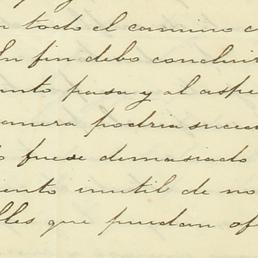 n todo el camino c
In fin debo concluir
nto pasa y al aspe
anera podria suced
o fuese demasiado
iento inutil de no
lles que puedan of